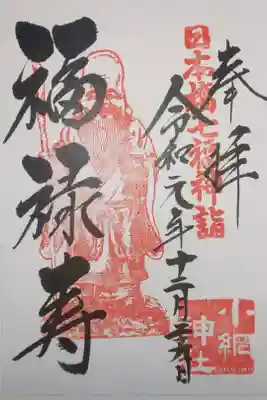 奉拝
日本橋七福神詣
令和元年十二月
福禄寿
小網
神社